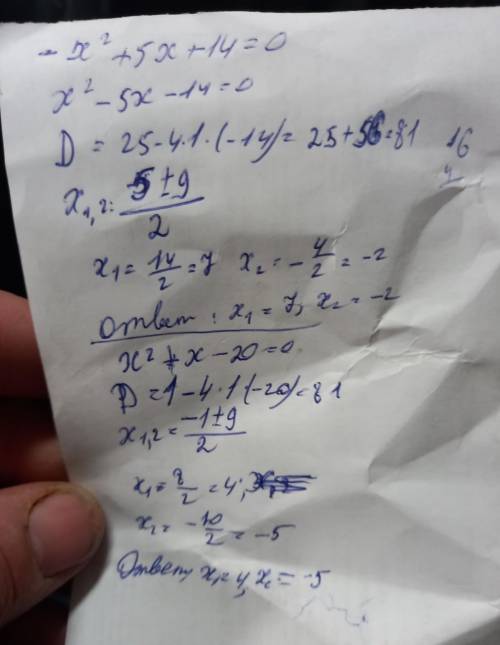 - x² + 5x + 14 = 0
x² - 5x - 14 = 0
D = 25 - 4·1·(-14) = 25 + 56 = 81
16
x₁,₂ = 5 ± 9 / 2
x₁ = 14/2 = 7 x₂ = - 4/2 = -2
Ответ: x₁ = 7, x₂ = -2
x² + x - 20 = 0
D = 1 - 4·1·(-20) = 81
x₁,₂ = -1 ± 9 / 2
x₁ = 8/2 = 4;
x₂ = -10/2 = -5
Ответ, x₁ = 4, x₂ = -5